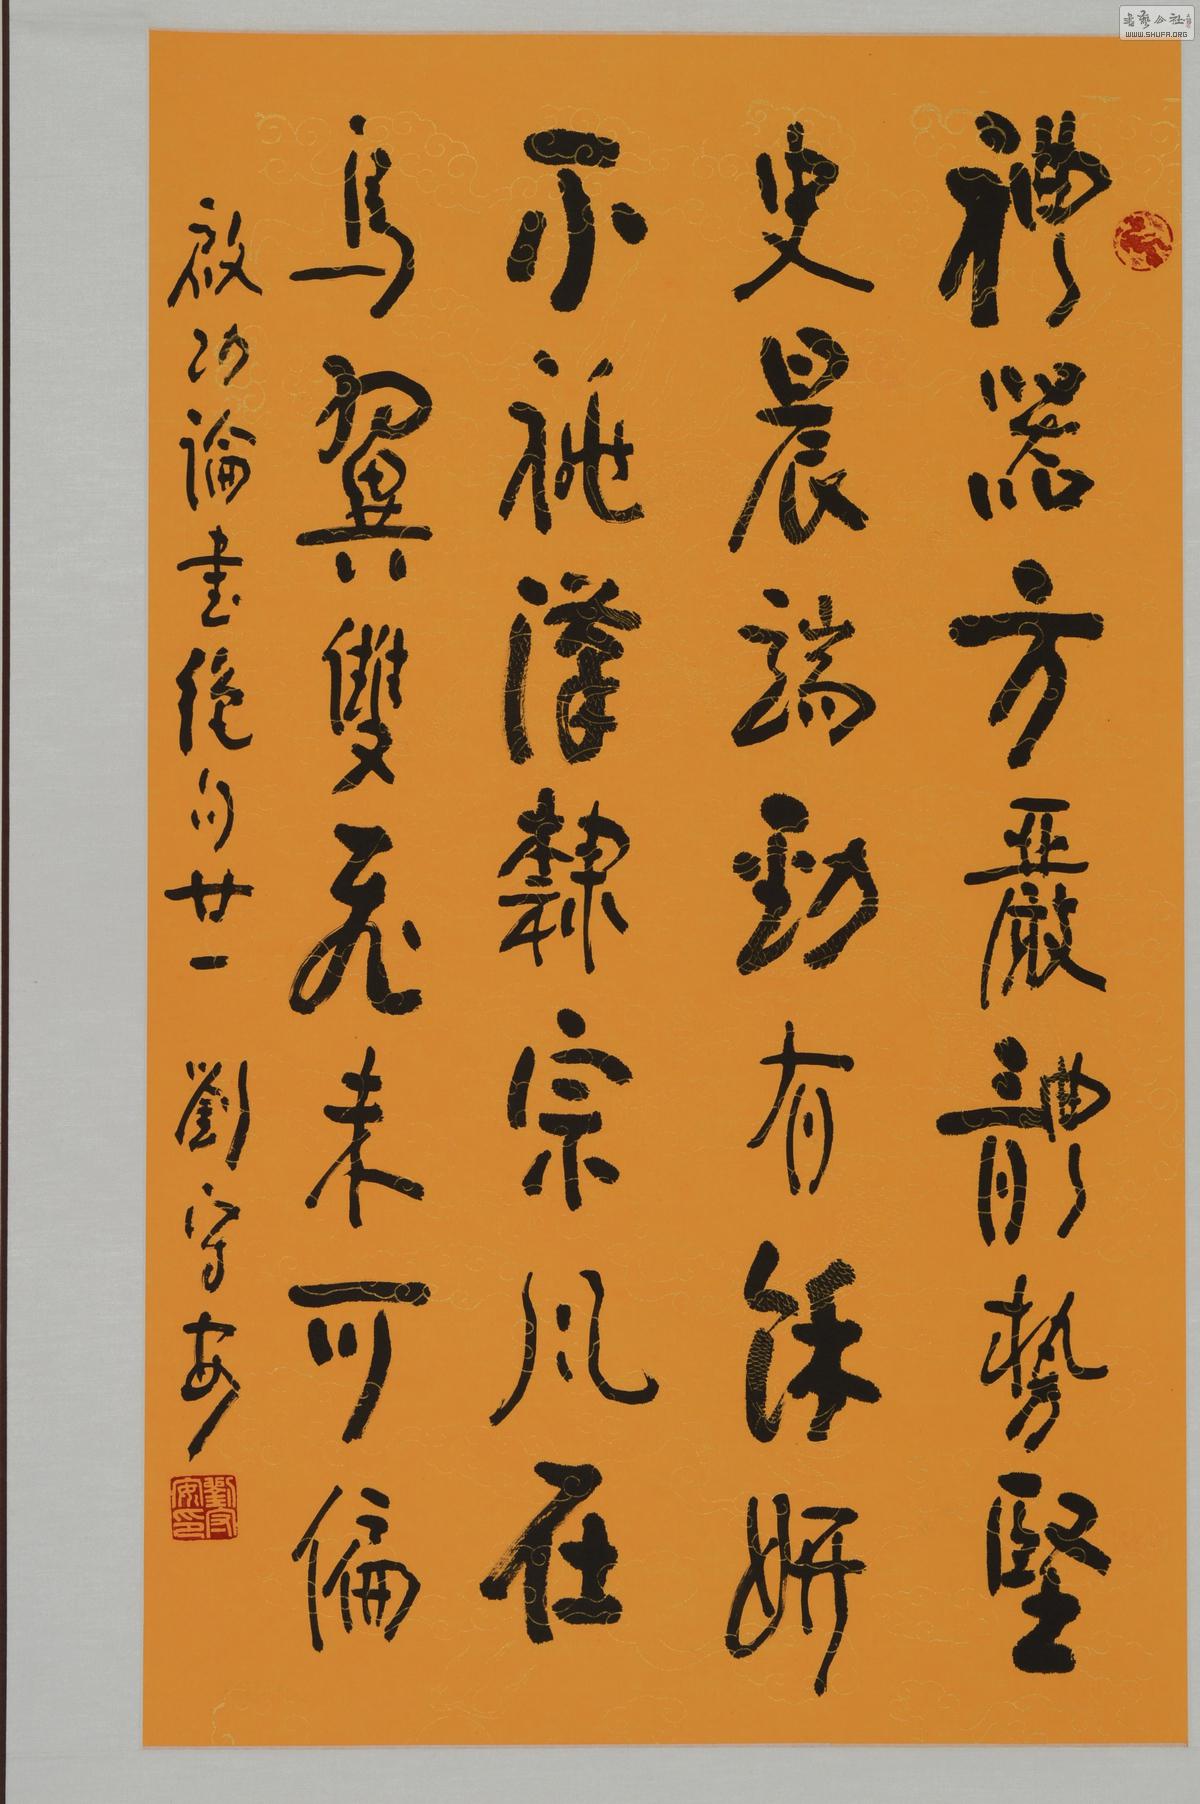 禮器方嚴體勢堅
史晨端勁有餘妍
不祧漢隸宗風在
鳥翼雙飛未可偏
啟功論書絕句廿一 劉守安
劉守安印
書藝公社
WWW.SHUFA.ORG